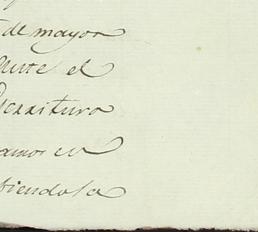 de mayor
ente el
Escritura
amos en
tiendola